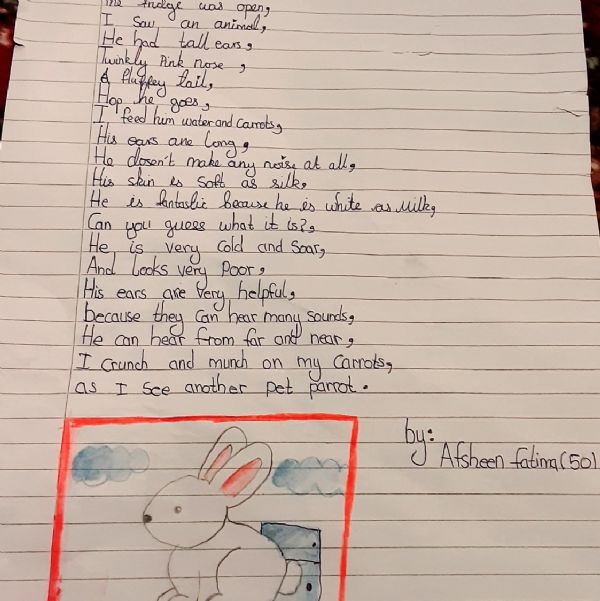 The fridge was open,
I saw an animal,
He had tall ears,
Twinkly Pink nose,
A fluffey tail,
Hop he goes,
I feed him water and Carrots,
His ears are long,
He dosen't make any noise at all,
His skin is soft as silk,
He is fantastic because he is white as Milk,
Can you guess what it is?,
He is very cold and soar,
And looks very Poor,
His ears are very helpful,
because they can hear many sounds,
He can hear from far and near,
I crunch and munch on my Carrots,
as I see another pet parrot.
by:
Afsheen fatima (50)